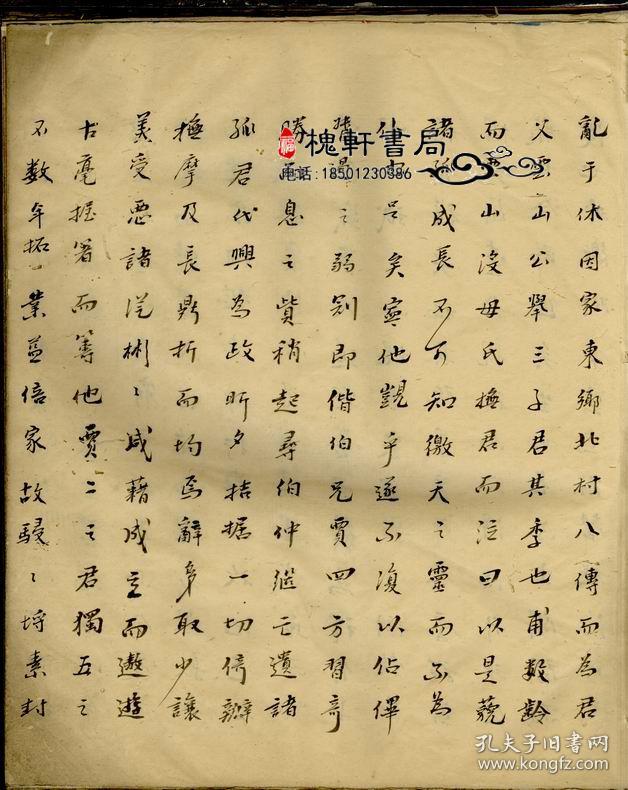 亂于休因家東鄉北村八傳而為君
父雲山公舉三子君其季也甫數齡
而雲山沒母氏撫君而泣曰以是藐
諸孤成長不可知徼天之靈而不為
是矣寧他覬乎遂不復以佔僤
之弱冠即偕伯兄賈四方習奇
勝息之貲稍起尋伯仲繼亡遺諸
孤君代興為政昕夕拮据一切倚辦
撫摩及長鼎折而均焉辭多取少讓
美受惡諸從彬〻咸藉成立而遨遊
古毫握箸而籌他賈二之君獨五之
不數年拓業益倍家故駸〻埒素封
槐軒書局
电话:18501230386
孔夫子旧书网
kongfz.com